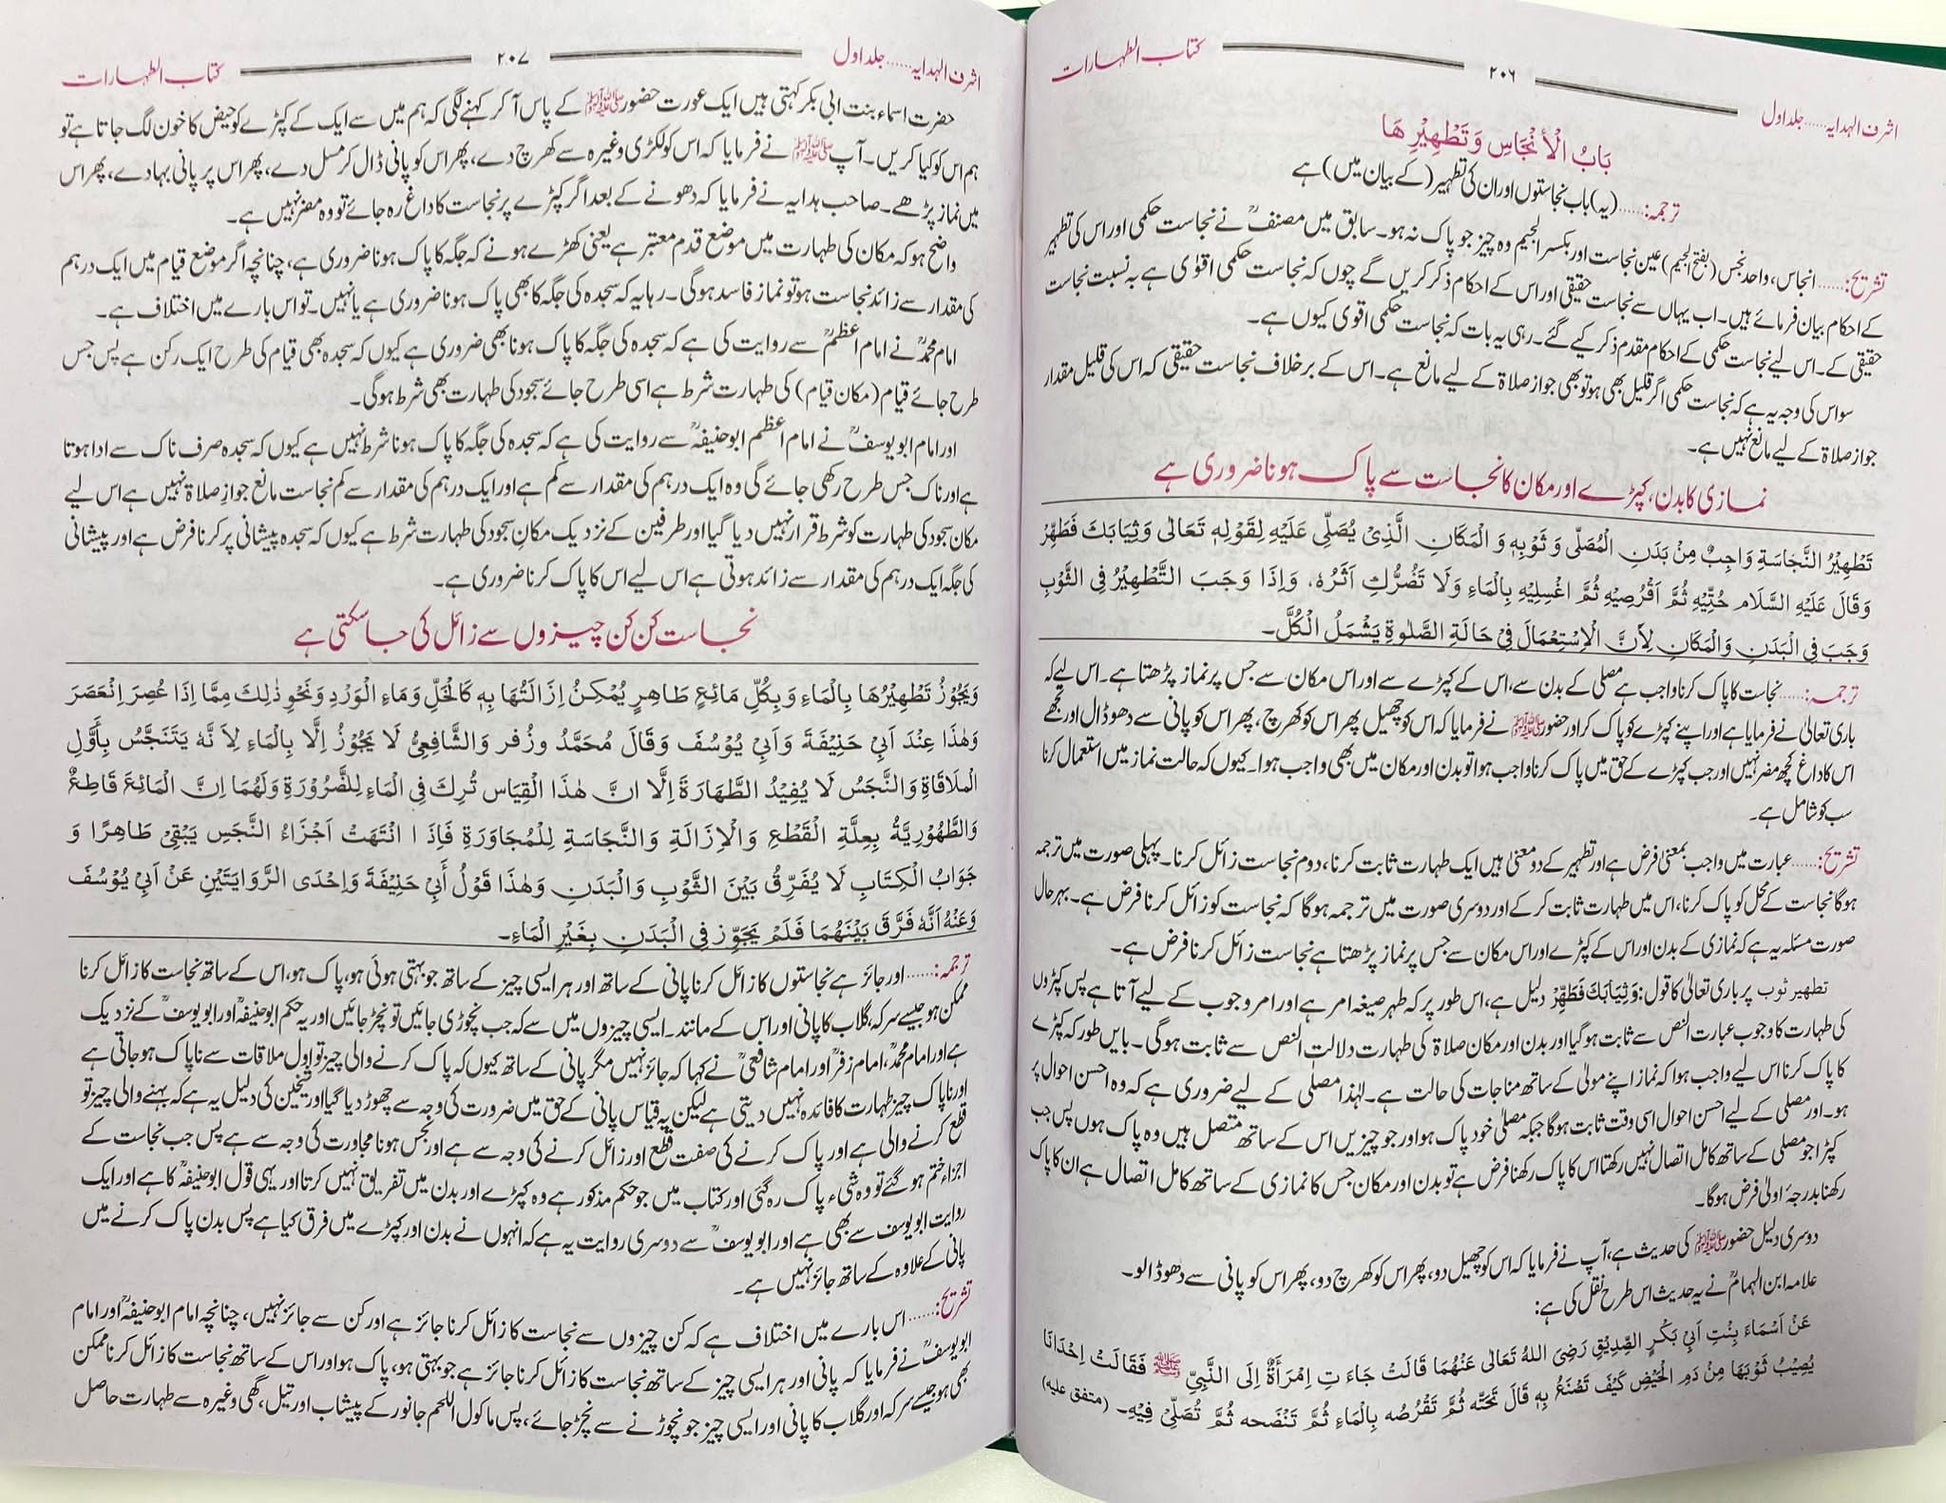 کتاب الطہارات ۲۰۶ اشرف الہدایہ......جلد اول
بَابُ الْأَنْجَاسِ وَتَطْهِيْرِهَا
ترجمہ:......(یہ) باب نجاستوں اور ان کی تطہیر (کے بیان میں) ہے
تشریح:......انجاس، واحد نجس (بفتح الجیم) عین نجاست اور بکسر الجیم وہ چیز جو پاک نہ ہو۔ سابق میں مصنفؒ نے نجاست حکمی اور اس کی تطہیر
کے احکام بیان فرمائے ہیں۔ اب یہاں سے نجاست حقیقی اور اس کے احکام ذکر کریں گے چوں کہ نجاست حکمی اقوٰی ہے بہ نسبت نجاست
حقیقی کے۔ اس لیے نجاست حکمی کے احکام مقدم ذکر کیے گئے۔ رہی یہ بات کہ نجاست حکمی اقوی کیوں ہے۔
سو اس کی وجہ یہ ہے کہ نجاست حکمی اگر قلیل بھی ہو تو بھی جواز صلاۃ کے لیے مانع ہے۔ اس کے برخلاف نجاست حقیقی کہ اس کی قلیل مقدار
جواز صلاۃ کے لیے مانع نہیں ہے۔
نمازی کا بدن، کپڑے اور مکان کا نجاست سے پاک ہونا ضروری ہے
تَطْهِيْرُ النَّجَاسَةِ وَاجِبٌ مِنْ بَدَنِ الْمُصَلِّى وَثَوْبِهٖ وَ الْمَكَانِ الَّذِىْ يُصَلِّى عَلَيْهِ لِقَوْلِهٖ تَعَالٰى وَثِيَابَكَ فَطَهِّرْ
وَقَالَ عَلَيْهِ السَّلَام حُتِّيْهِ ثُمَّ اَقْرُصِيْهِ ثُمَّ اغْسِلِيْهِ بِالْمَاءِ وَلَا تَضُرُّكِ اَثَرُهٗ، وَإِذَا وَجَبَ التَّطْهِيْرُ فِى الثَّوْبِ
وَجَبَ فِى الْبَدَنِ وَالْمَكَانِ لِأَنَّ الْاِسْتِعْمَالَ فِىْ حَالَةِ الصَّلٰوةِ يَشْمَلُ الْكُلَّ۔
ترجمہ:......نجاست کا پاک کرنا واجب ہے مصلی کے بدن سے، اس کے کپڑے سے اور اس مکان سے جس پر نماز پڑھتا ہے۔ اس لیے کہ
باری تعالیٰ نے فرمایا ہے اور اپنے کپڑے کو پاک کر اور حضور ﷺ نے فرمایا کہ اس کو چھیل پھر اس کو کھرچ، پھر اس کو پانی سے دھو ڈال اور تجھے
اس کا داغ کچھ مضر نہیں اور جب کپڑے کے حق میں پاک کرنا واجب ہوا تو بدن اور مکان میں بھی واجب ہوا۔ کیوں کہ حالت نماز میں استعمال کرنا
سب کو شامل ہے۔
تشریح:......عبارت میں واجب بمعنی فرض ہے اور تطہیر کے دو معنی ہیں ایک طہارت ثابت کرنا، دوم نجاست زائل کرنا۔ پہلی صورت میں ترجمہ
ہوگا نجاست کے محل کو پاک کرنا، اس میں طہارت ثابت کر کے اور دوسری صورت میں ترجمہ ہوگا کہ نجاست کو زائل کرنا فرض ہے۔ بہرحال
صورت مسئلہ یہ ہے کہ نمازی کے بدن اور اس کے کپڑے اور اس مکان سے جس پر نماز پڑھتا ہے نجاست زائل کرنا فرض ہے۔
تطہیر ثوب پر باری تعالیٰ کا قول: وَثِيَابَكَ فَطَهِّرْ دلیل ہے، اس طور پر کہ طہر صیغہ امر ہے اور امر وجوب کے لیے آتا ہے پس کپڑوں
کی طہارت کا وجوب عبارت النص سے ثابت ہو گیا اور بدن اور مکان صلاۃ کی طہارت دلالت النص سے ثابت ہوگی۔ بایں طور کہ کپڑے
کا پاک کرنا اس لیے واجب ہوا کہ نماز اپنے مولیٰ کے ساتھ مناجات کی حالت ہے۔ لہٰذا مصلی کے لیے ضروری ہے کہ وہ احسن احوال پر
ہو۔ اور مصلی کے لیے احسن احوال اسی وقت ثابت ہوگا جبکہ مصلی خود پاک ہو اور جو چیزیں اس کے ساتھ متصل ہیں وہ پاک ہوں پس جب
کپڑا جو مصلی کے ساتھ کامل اتصال نہیں رکھتا اس کا پاک رکھنا فرض ہے تو بدن اور مکان جس کا نمازی کے ساتھ کامل اتصال ہے ان کا پاک
رکھنا بدرجۂ اولیٰ فرض ہوگا۔
دوسری دلیل حضور ﷺ کی حدیث ہے، آپ نے فرمایا کہ اس کو چھیل دو، پھر اس کو کھرچ دو، پھر اس کو پانی سے دھو ڈالو۔
علامہ ابن الہمامؒ نے یہ حدیث اس طرح نقل کی ہے:
عَنْ اَسْمَاءَ بِنْتِ اَبِىْ بَكْرِ الصِّدِيْقِ رَضِىَ اللهُ تَعَالٰى عَنْهُمَا قَالَتْ جَاءَ تِ اِمْرَأَةٌ اِلَى النَّبِيِّ ﷺ فَقَالَتْ اِحْدَانَا
يُصِيْبُ ثَوْبَهَا مِنْ دَمِ الْحَيْضِ كَيْفَ تَصْنَعُ بِهٖ قَالَ تَحَتّه ثُمَّ تَقْرُصُه بِالْمَاءِ ثُمَّ تَنْضَحه ثُمَّ تُصَلِّىْ فِيْهِ۔ (متفق علیہ)
کتاب الطہارات ۲۰۷ اشرف الہدایہ......جلد اول
حضرت اسماء بنت ابی بکر کہتی ہیں ایک عورت حضور ﷺ کے پاس آ کر کہنے لگی کہ ہم میں سے ایک کے کپڑے کو حیض کا خون لگ جاتا ہے تو
ہم اس کو کیا کریں۔ آپ ﷺ نے فرمایا کہ اس کو لکڑی وغیرہ سے کھرچ دے، پھر اس کو پانی ڈال کر مسل دے، پھر اس پر پانی بہا دے، پھر اس
میں نماز پڑھے۔ صاحب ہدایہ نے فرمایا کہ دھونے کے بعد اگر کپڑے پر نجاست کا داغ رہ جائے تو وہ مضر نہیں ہے۔
واضح ہو کہ مکان کی طہارت میں موضع قدم معتبر ہے یعنی کھڑے ہونے کہ جگہ کا پاک ہونا ضروری ہے، چنانچہ اگر موضع قیام میں ایک درہم
کی مقدار سے زائد نجاست ہو تو نماز فاسد ہوگی۔ رہا یہ کہ سجدہ کی جگہ کا بھی پاک ہونا ضروری ہے یا نہیں۔ تو اس بارے میں اختلاف ہے۔
امام محمدؒ نے امام اعظمؒ سے روایت کی ہے کہ سجدہ کی جگہ کا پاک ہونا بھی ضروری ہے کیوں کہ سجدہ بھی قیام کی طرح ایک رکن ہے پس جس
طرح جائے قیام (مکان قیام) کی طہارت شرط ہے اسی طرح جائے سجود کی طہارت بھی شرط ہوگی۔
اور امام ابو یوسفؒ نے امام اعظم ابو حنیفہؒ سے روایت کی ہے کہ سجدہ کی جگہ کا پاک ہونا شرط نہیں ہے کیوں کہ سجدہ صرف ناک سے ادا ہوتا
ہے اور ناک جس طرح رکھی جائے گی وہ ایک درہم کی مقدار سے کم ہے اور ایک درہم کی مقدار سے کم نجاست مانع جوازِ صلاۃ نہیں ہے اس لیے
مکان سجود کی طہارت کو شرط قرار نہیں دیا گیا اور طرفین کے نزدیک مکانِ سجود کی طہارت شرط ہے کیوں کہ سجدہ پیشانی پر کرنا فرض ہے اور پیشانی
کی جگہ ایک درہم کی مقدار سے زائد ہوتی ہے اس لیے اس کا پاک کرنا ضروری ہے۔
نجاست کن کن چیزوں سے زائل کی جاسکتی ہے
وَيَجُوْزُ تَطْهِيْرُهَا بِالْمَاءِ وَبِكُلِّ مَائِعٍ طَاهِرٍ يُمْكِنُ اِزَالَتُهَا بِهٖ كَالْخَلِّ وَمَاءِ الْوَرْدِ وَنَحْوِ ذٰلِكَ مِمَّا اِذَا عُصِرَ اِنْعَصَرَ
وَهٰذَا عِنْدَ اَبِىْ حَنِيْفَةَ وَاَبِىْ يُوْسُفَ وَقَالَ مُحَمَّدٌ وَزُفَر وَالشَّافِعِىُّ لَا يَجُوْزُ اِلَّا بِالْمَاءِ لِاَ نَّهٗ يَتَنَجَّسُ بِأَوَّلِ
الْمَلَاقَاةِ وَالنَّجَسُ لَا يُفِيْدُ الطَّهَارَةَ اِلَّا انَّ هٰذَا الْقِيَاس تُرِكَ فِى الْمَاءِ لِلضَّرُوْرَةِ وَلَهُمَا اِنَّ الْمَائِعَ قَاطِعٌ
وَالطُّهُوْرِيَّةُ بِعِلَّةِ الْقَطْعِ وَالْاِزَالَةِ وَالنَّجَاسَةِ لِلْمُجَاوَرَةِ فَاِذَ ا انْتَهَتْ اَجْزَاءُ النَّجَسِ يَبْقٰى طَاهِرًا وَ
جَوَابُ الْكِتَابِ لَا يُفَرِّقُ بَيْنَ الثَّوْبِ وَالْبَدَنِ وَهٰذَا قَوْلُ أَبِىْ حَنِيْفَةَ وَاِحْدَى الرَّوَايَتَيْنِ عَنْ اَبِىْ يُوْسُفَ
وَعَنْهُ اَنَّهٗ فَرَّقَ بَيْنَهُمَا فَلَمْ يَجَوِّز فِى الْبَدَنِ بِغَيْرِ الْمَاءِ۔
ترجمہ:......اور جائز ہے نجاستوں کا زائل کرنا پانی کے ساتھ اور ہر ایسی چیز کے ساتھ جو بہتی ہوئی ہو، پاک ہو، اس کے ساتھ نجاست کا زائل کرنا
ممکن ہو جیسے سرکہ، گلاب کا پانی اور اس کے مانند۔ ایسی چیزوں میں سے کہ جب نچوڑی جائیں تو نچڑ جائیں اور یہ حکم ابو حنیفہؒ اور ابو یوسفؒ کے نزدیک
ہے اور امام محمدؒ، امام زفرؒ اور امام شافعیؒ نے کہا کہ جائز نہیں مگر پانی کے ساتھ کیوں کہ پاک کرنے والی چیز تو اول ملاقات سے ناپاک ہو جاتی ہے
اور ناپاک چیز طہارت کا فائدہ نہیں دیتی ہے لیکن یہ قیاس پانی کے حق میں ضرورت کی وجہ سے چھوڑ دیا گیا اور شیخین کی دلیل یہ ہے کہ بہنے والی چیز تو
قطع کرنے والی ہے اور پاک کرنے کی صفت قطع اور زائل کرنے کی وجہ سے ہے اور نجس ہونا مجاورت کی وجہ سے ہے پس جب نجاست کے
اجزاء ختم ہو گئے تو وہ شیٔ پاک رہ گئی اور کتاب میں جو حکم مذکور ہے وہ کپڑے اور بدن میں تفریق نہیں کرتا اور یہی قول ابو حنیفہؒ کا ہے اور ایک
روایت ابو یوسف سے بھی ہے اور ابو یوسفؒ سے دوسری روایت یہ ہے کہ انہوں نے بدن اور کپڑے میں فرق کیا ہے پس بدن پاک کرنے میں
پانی کے علاوہ کے ساتھ جائز نہیں ہے۔
تشریح:......اس بارے میں اختلاف ہے کہ کن چیزوں سے نجاست کا زائل کرنا جائز ہے اور کن سے جائز نہیں، چنانچہ امام ابو حنیفہؒ اور امام
ابو یوسفؒ نے فرمایا کہ پانی اور ہر ایسی چیز کے ساتھ نجاست کا زائل کرنا جائز ہے جو بہتی ہو، پاک ہو اور اس کے ساتھ نجاست کا زائل کرنا ممکن
بھی ہو جیسے سرکہ اور گلاب کا پانی اور ایسی چیز جو نچوڑنے سے نچڑ جائے، پس ماکول اللحم جانور کے پیشاب اور تیل، گھی وغیرہ سے طہارت حاصل